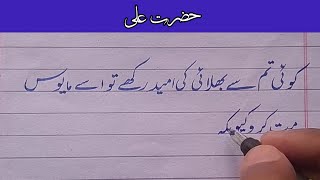 حضرت علی
کوئی تم سے بھلائی کی امید رکھے تو اسے مایوس
مت کرو کیونکہ